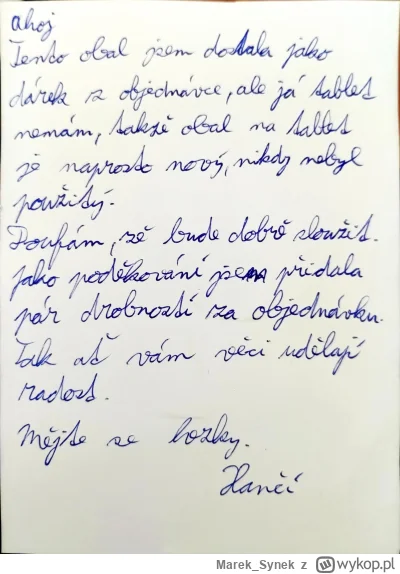 ahoj
Tento obal jsem dostala jako
dárek z objednávce, ale já tablet
nemám, takzě obal na tablet
je naprosto nový, nikdy nebyl
použitý.
Doufám, zě bude dobrě sloužit.
Jako poděkování jsem přidala
pár drobností za objednávku.
Tak ať vám věci udělají
radost.
Mějte se hozky.
Hančí
Marek_Synek z wykop.pl